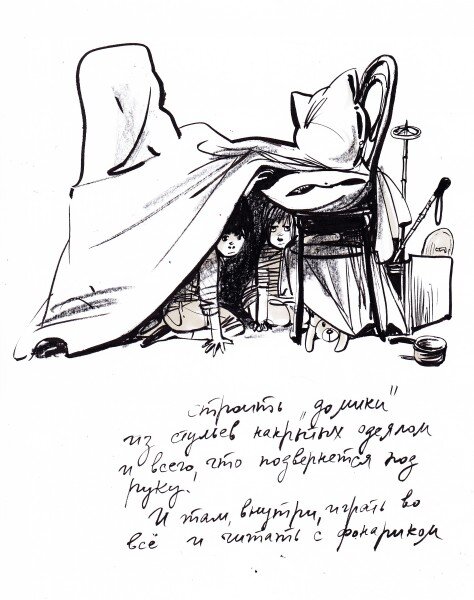 строить "домики"
из стульев накрытых одеялом
и всего, что подвернется под
руку.
И там, внутри, играть во
всё и читать с фонариком